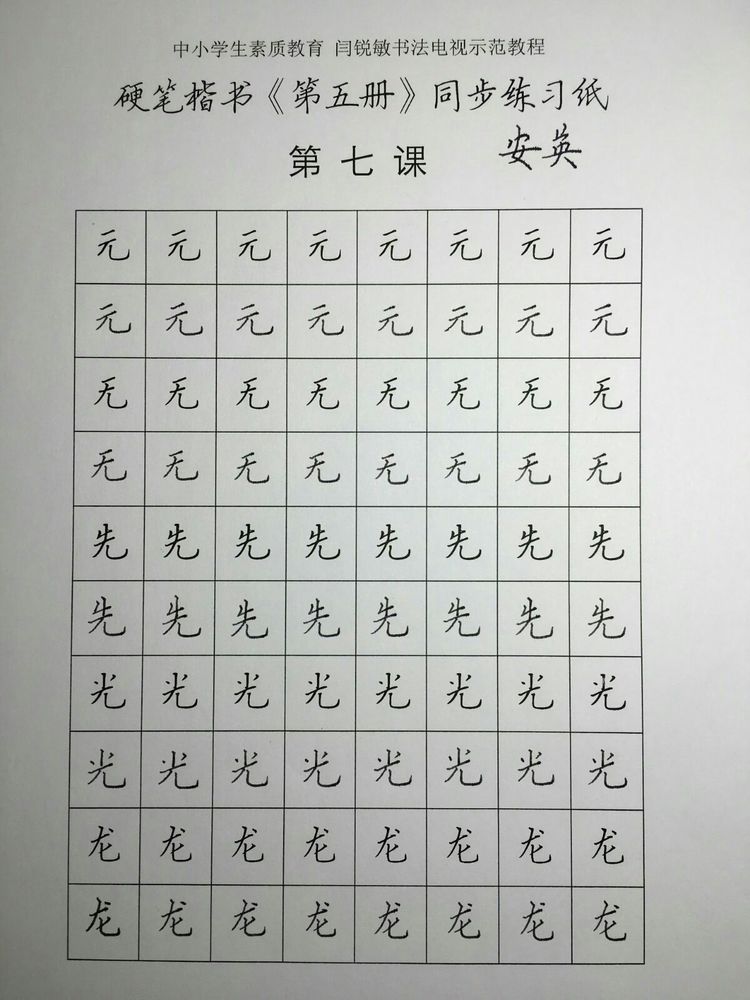 中小学生素质教育 闫锐敏书法电视示范教程
硬笔楷书《第五册》同步练习纸
第七课 安英
元 元 元 元 元 元 元 元
元 元 元 元 元 元 元 元
无 无 无 无 无 无 无 无
无 无 无 无 无 无 无 无
先 先 先 先 先 先 先 先
先 先 先 先 先 先 先 先
光 光 光 光 光 光 光 光
光 光 光 光 光 光 光 光
龙 龙 龙 龙 龙 龙 龙 龙
龙 龙 龙 龙 龙 龙 龙 龙